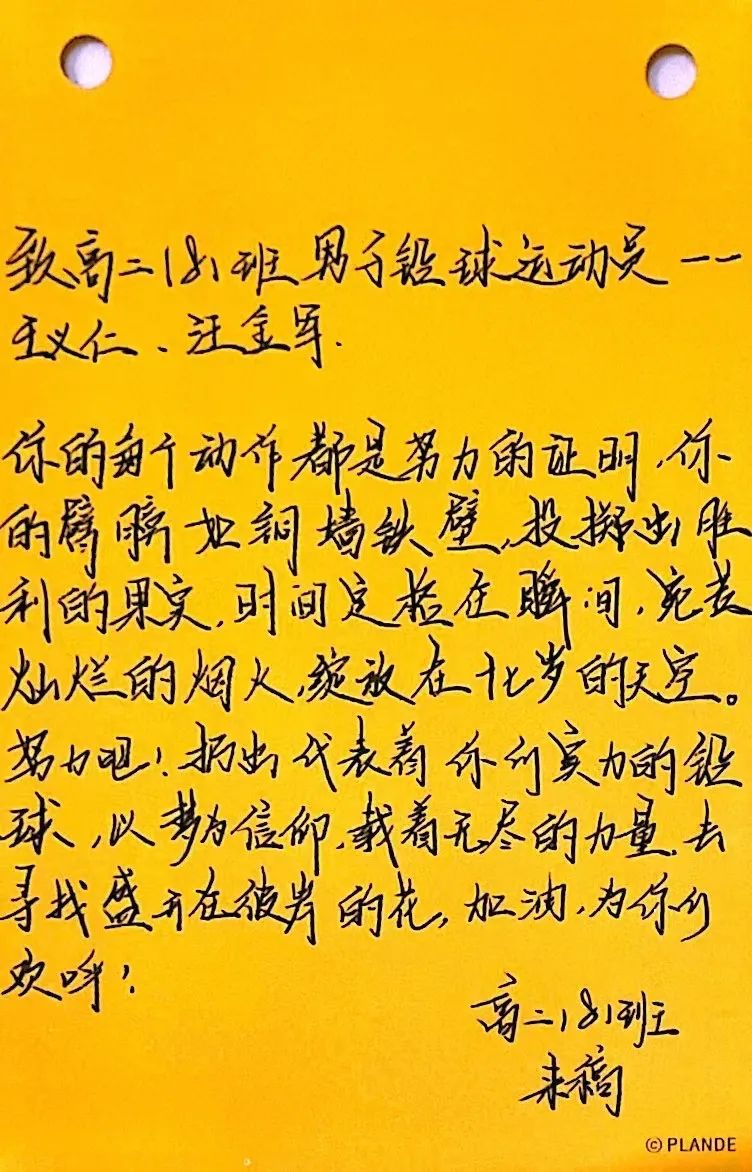 致高二181班男子铅球运动员——
王义仁、汪金军.
你的每个动作都是努力的证明,你
的臂膀如铜墙铁壁,投掷出胜
利的果实,时间定格在瞬间,宛若
灿烂的烟火,绽放在十七岁的天空。
努力吧!扔出代表着你们实力的铅
球,以梦为信仰,载着无尽的力量,去
寻找盛开在彼岸的花,加油,为你们
欢呼!
高二181班
来稿
© PLANDE